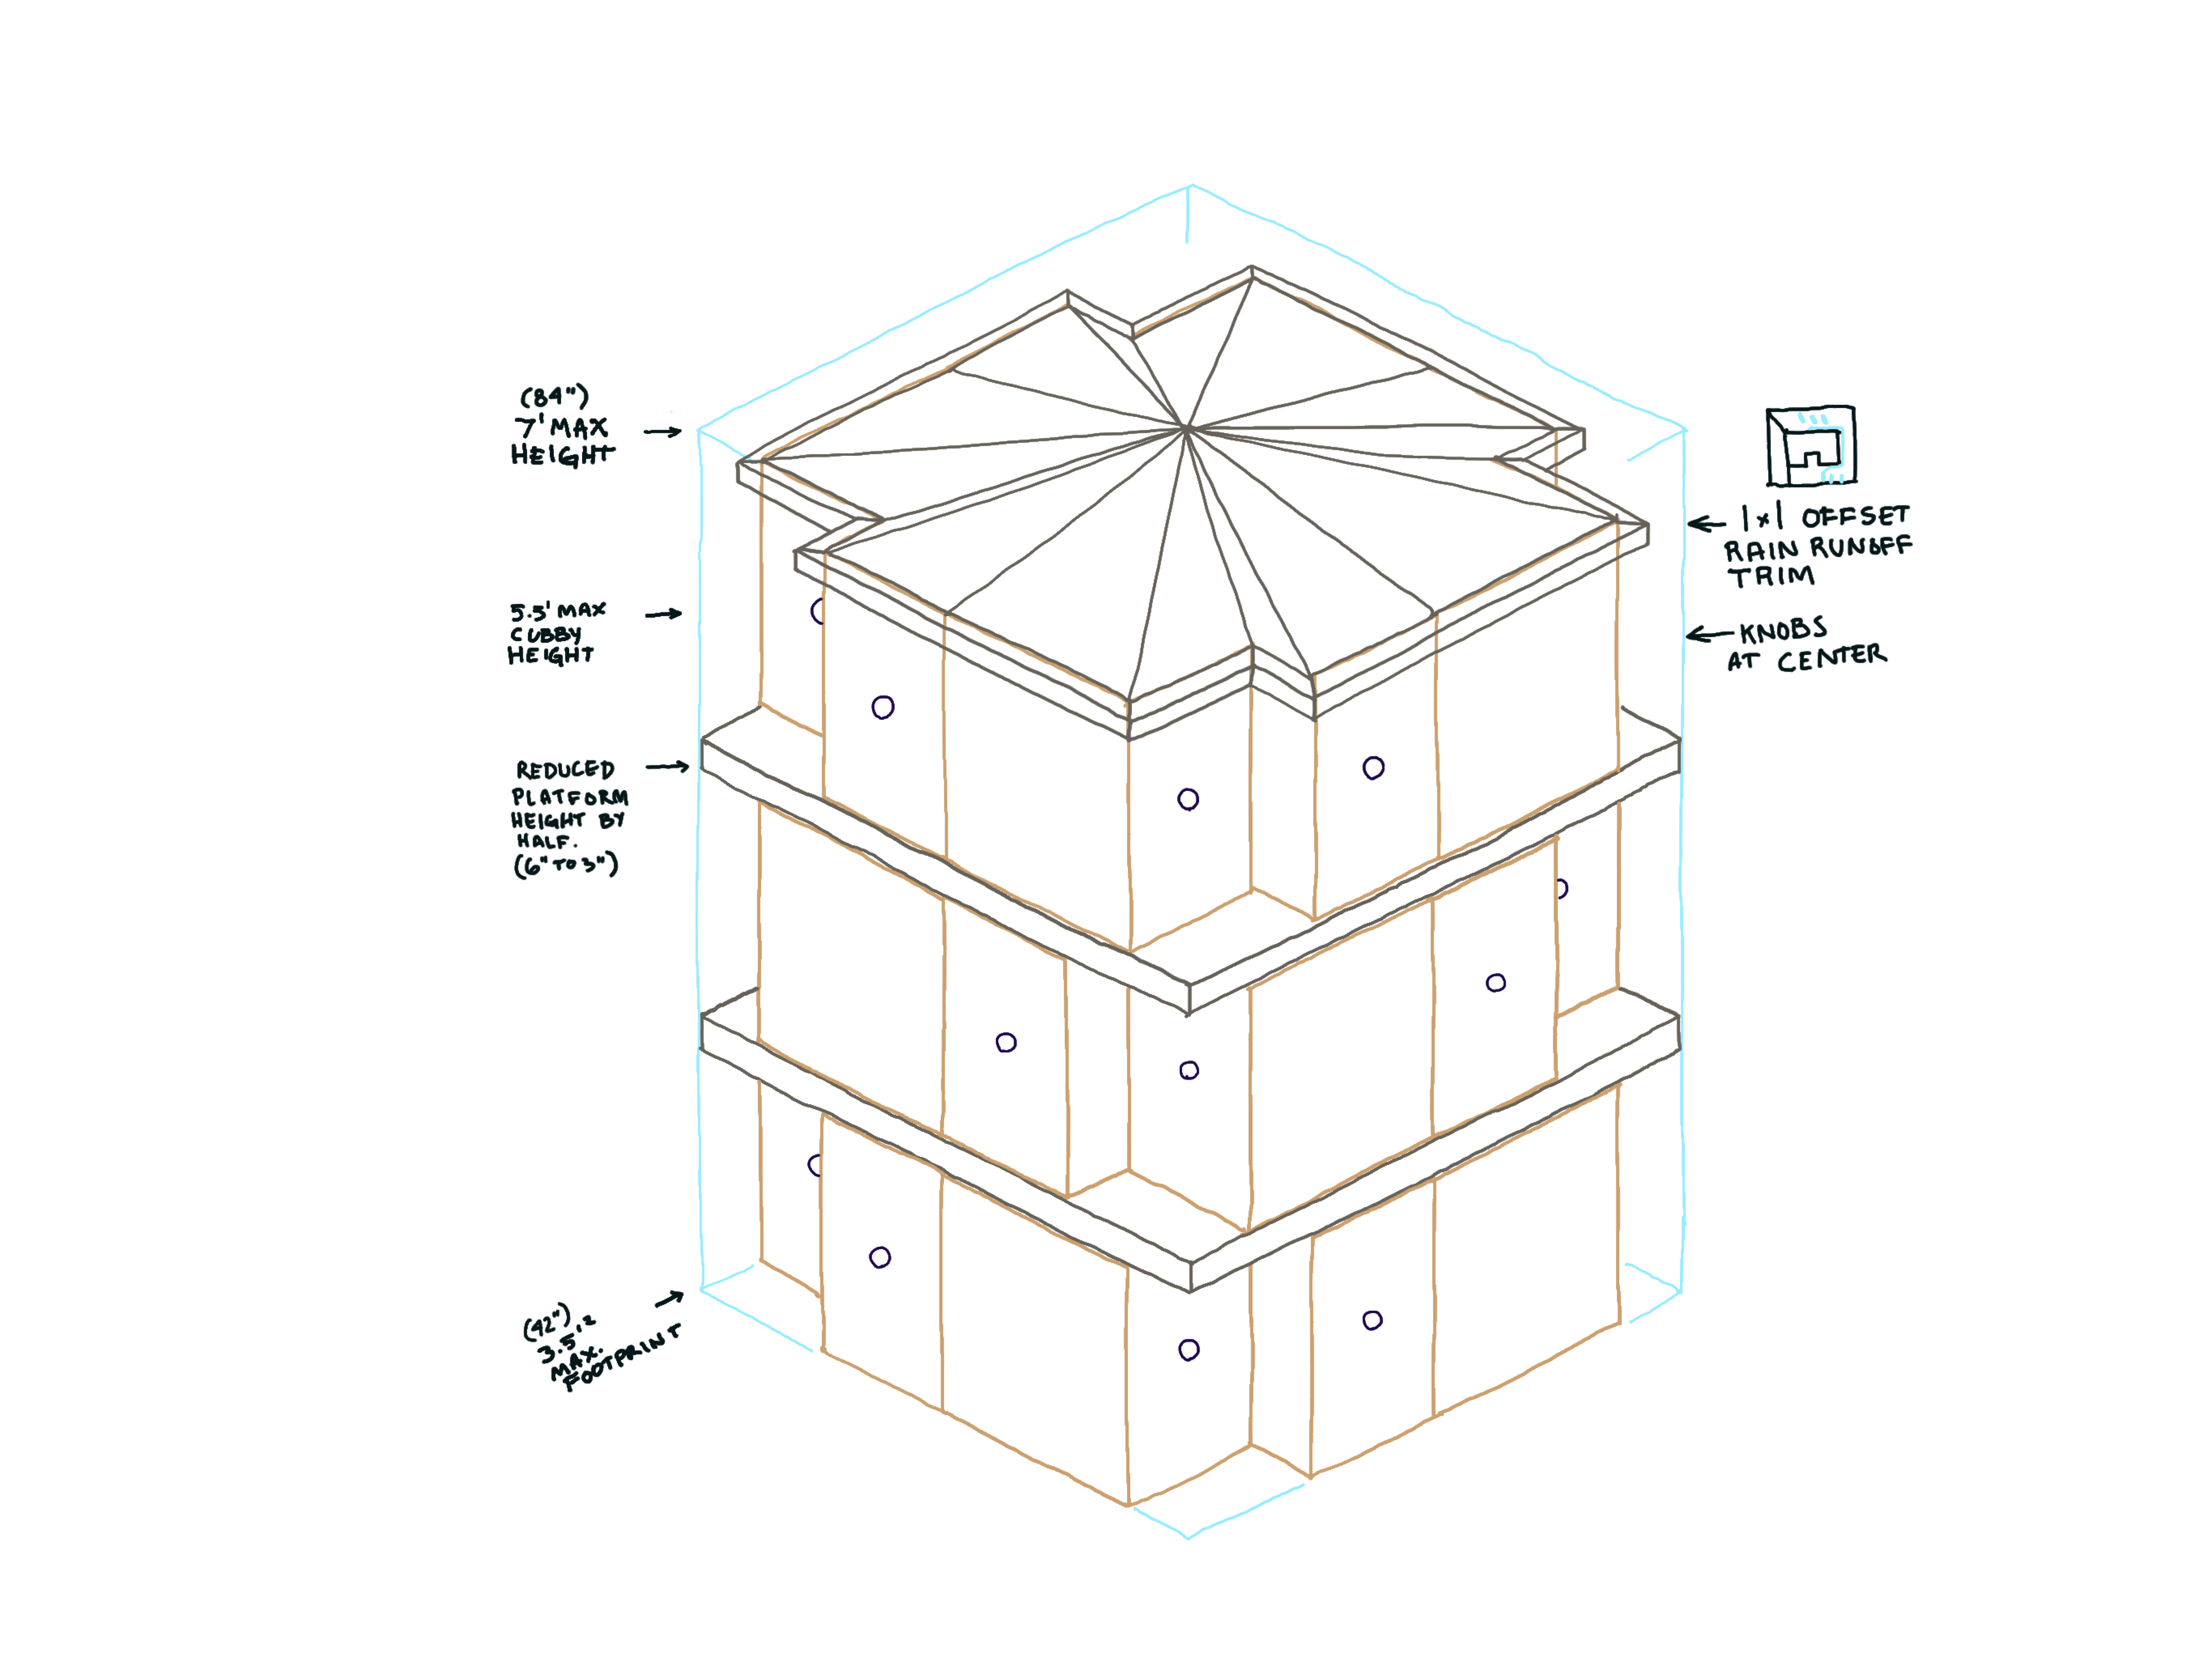 (84")
7' MAX
HEIGHT
5.5' MAX
CUBBY
HEIGHT
REDUCED
PLATFORM
HEIGHT BY
HALF.
(6" TO 3")
(42")
3.5'²
MAX.
FOOTPRINT
1x1 OFFSET
RAIN RUNOFF
TRIM
KNOBS
AT CENTER